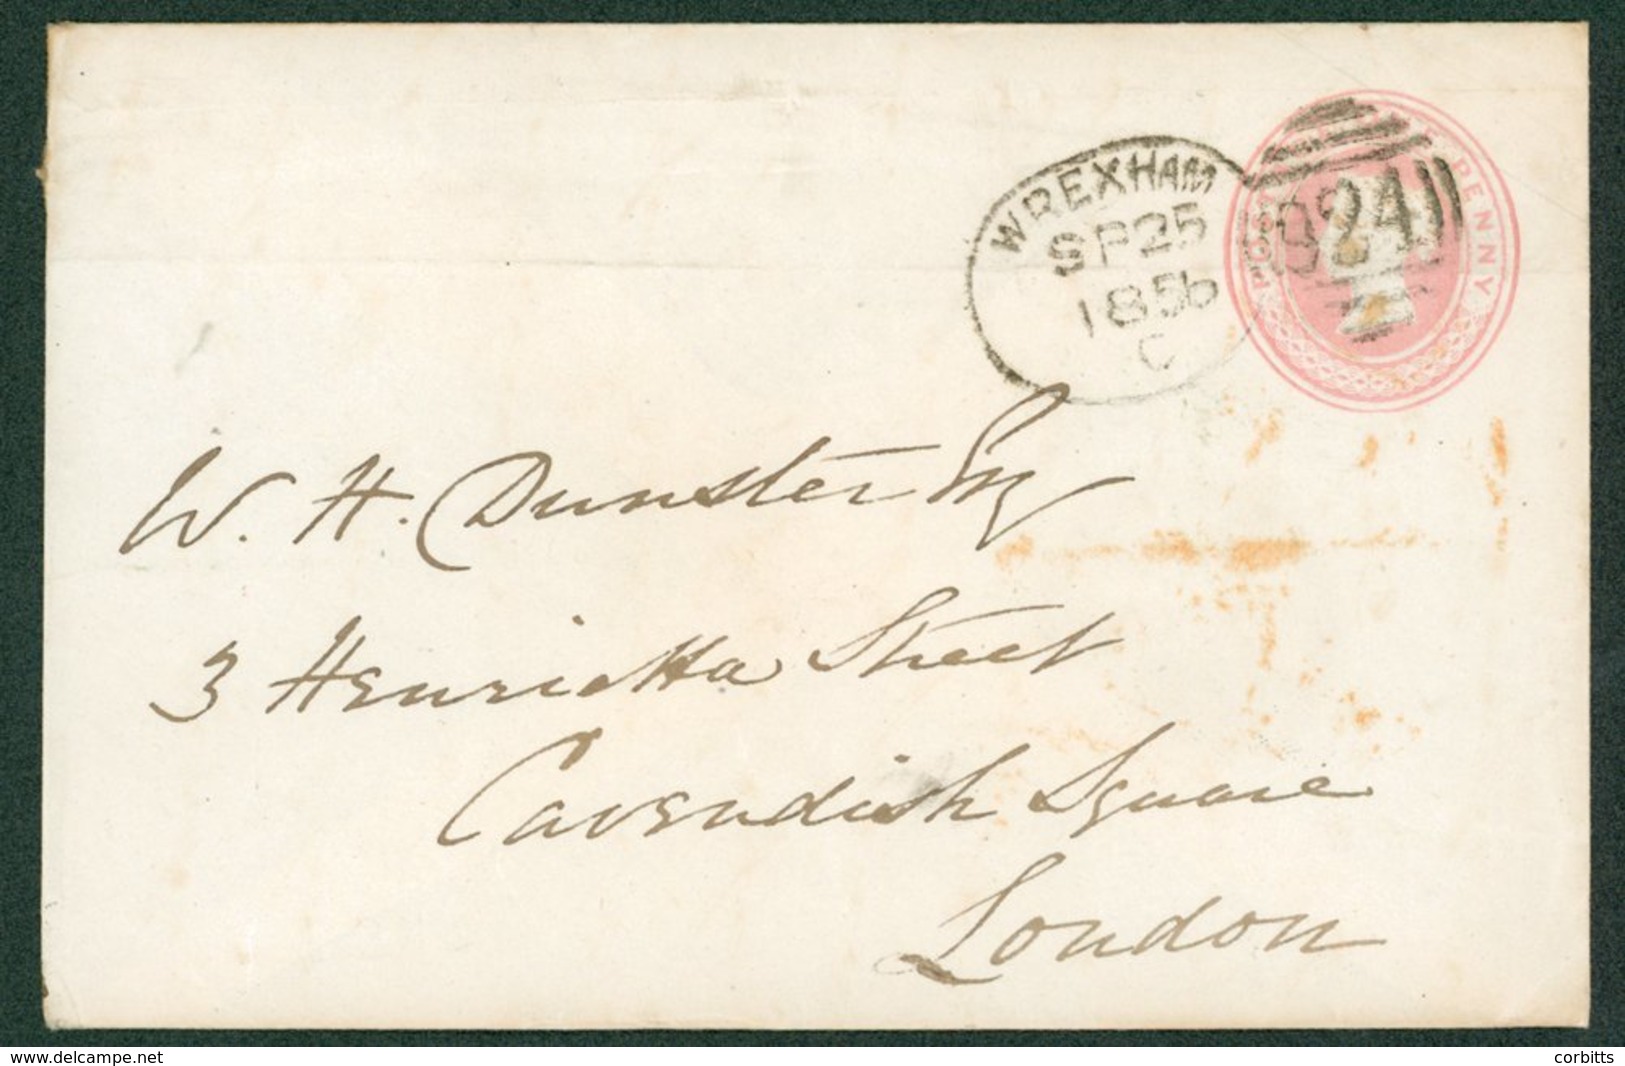 WREXHAM
SP 25
1856
C
924
POSTAGE ONE PENNY
W. H. Dunster Esq
3 Henrietta Street
Cavendish Square
London
delcampe.net
corbitts